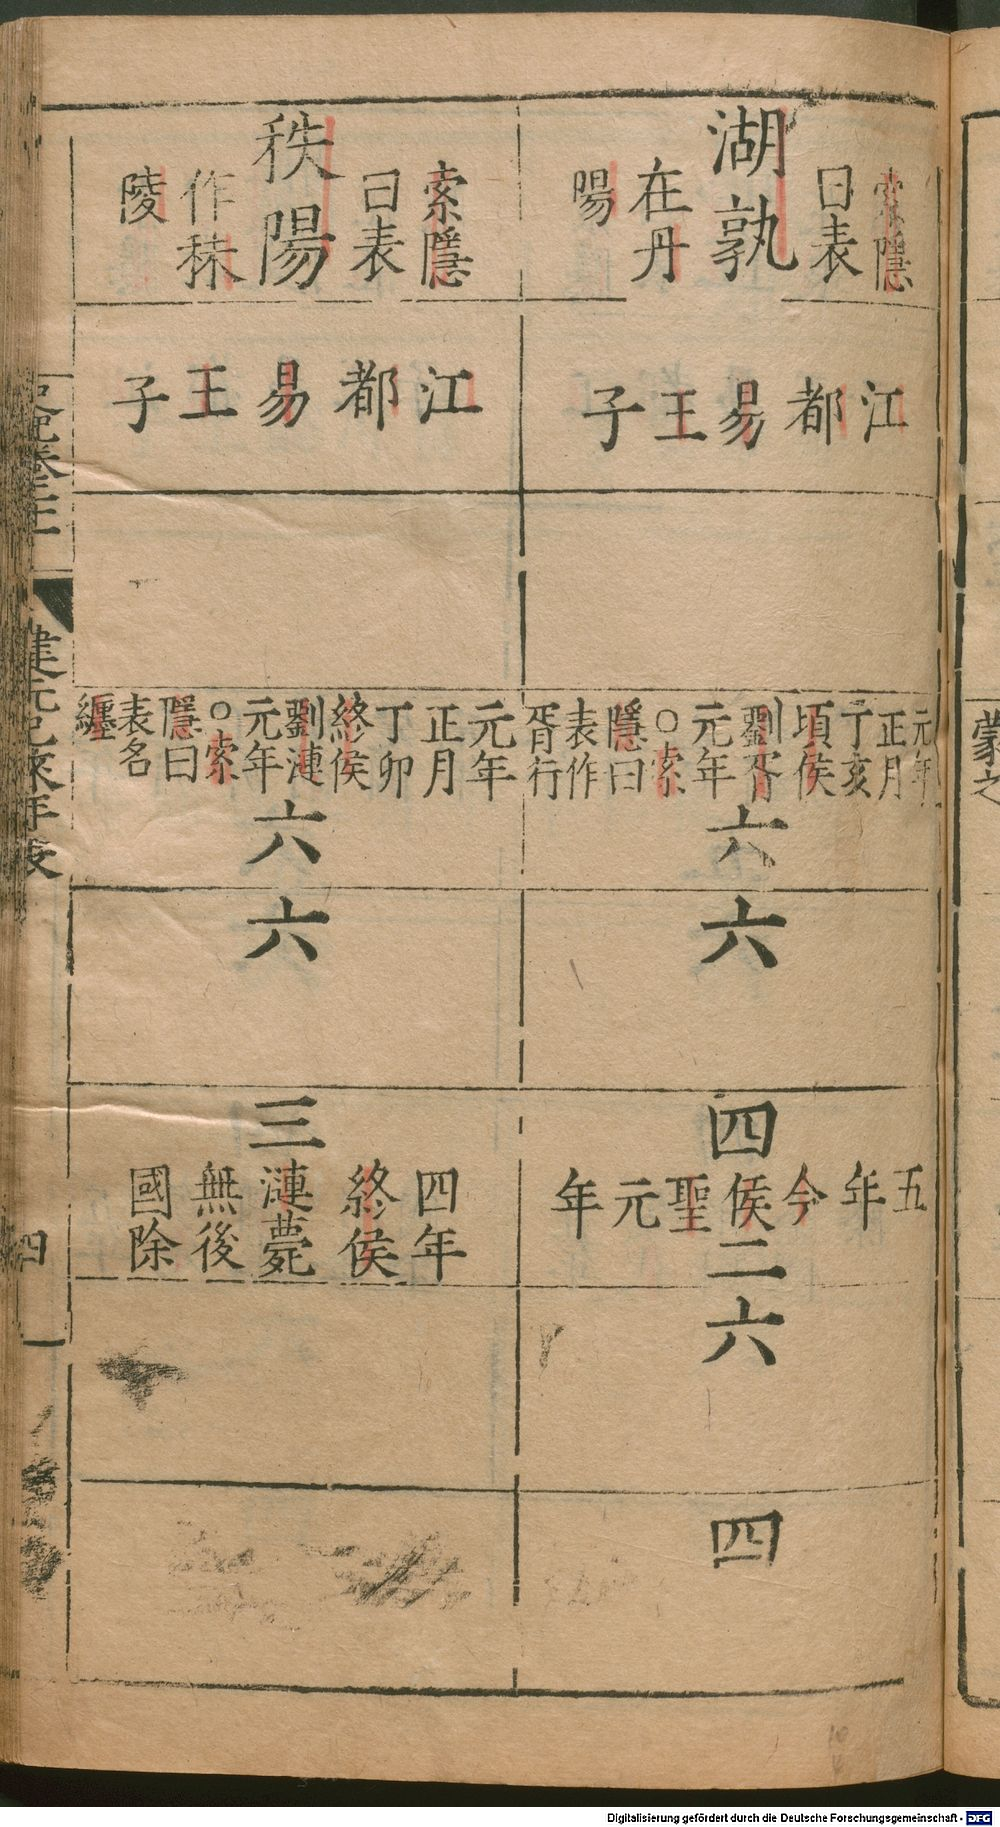 湖孰
索隱
曰表
在丹
陽
江都易王子
元年
正月
丁亥
頃侯
劉胥
元年
○索
隱曰
表作
胥行
六
六
四
五年今侯聖元年
二
六
四
秩陽
索隱
曰表
作秣
陵
江都易王子
元年
正月
丁卯
終侯
劉漣
元年
○索
隱曰
表名
纏
六
六
三
四年
終侯
漣薨
無後
國除
四
蒙之
Digitalisierung gefördert durch die Deutsche Forschungsgemeinschaft - DFG